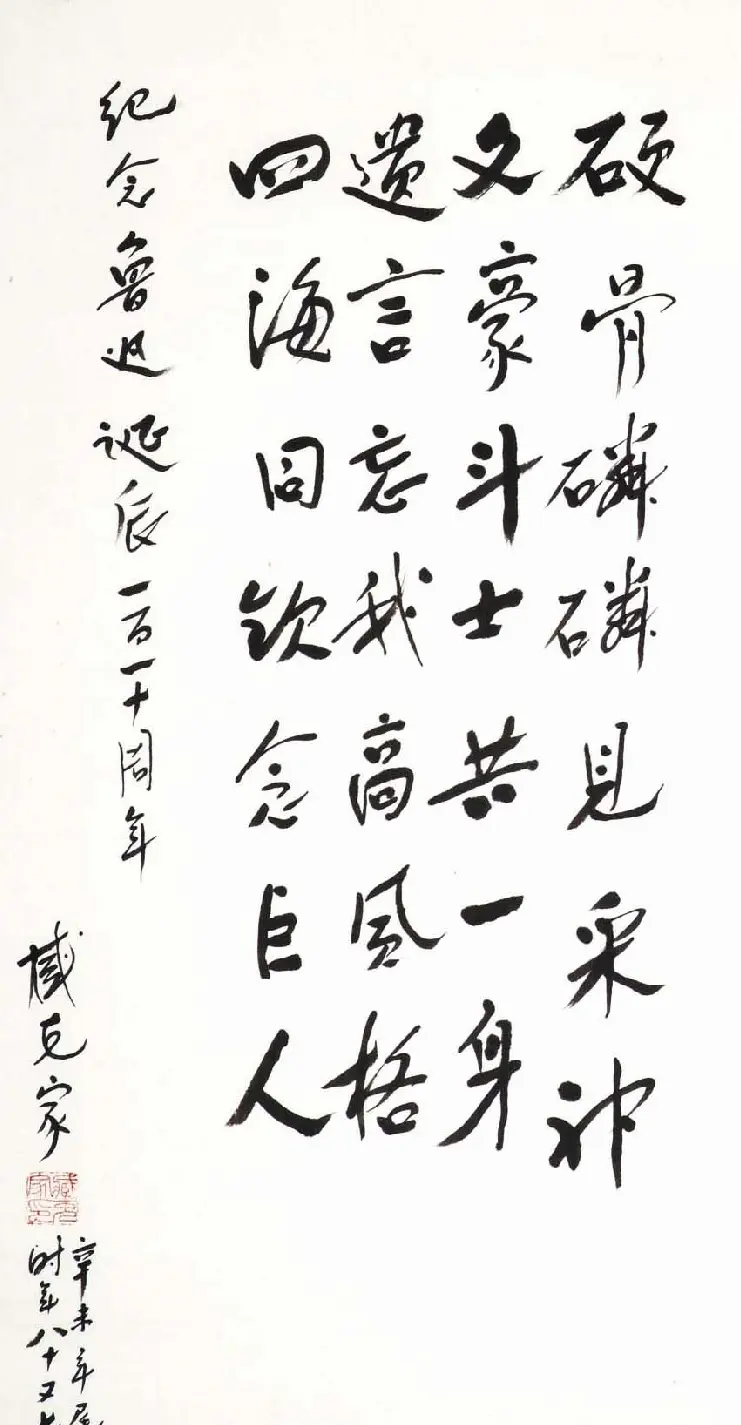 硬骨磷磷見采神
文豪斗士共一身
遗言忘我高风格
四海同钦念巨人
纪念鲁迅诞辰一百一十周年
臧克家
辛未年尾
时年八十又七